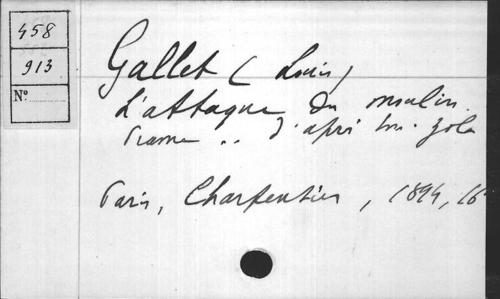 458
913
N°
Gallet (Louis)
L'attaque du moulin.
Drame .. d'après Em. Zola
Paris, Charpentier, 1894, 16°